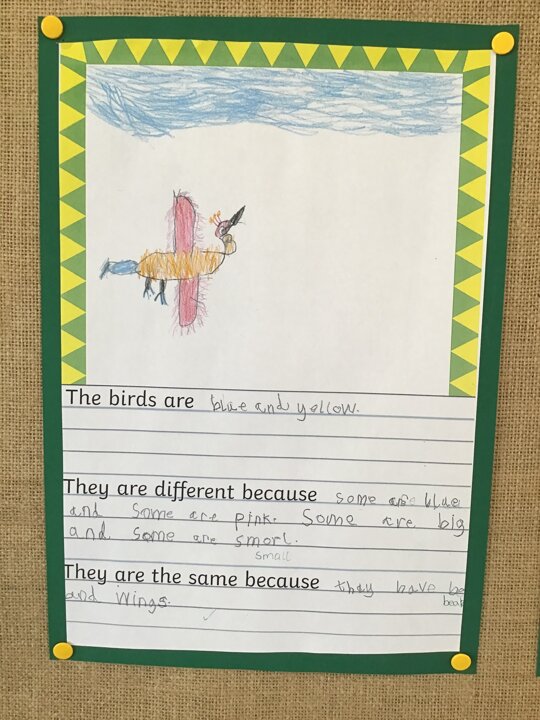 The birds are blue and yellow.
They are different because some are blue
and some are pink. Some are big
and some are smorl.
small
They are the same because they have be
beak
and wings.